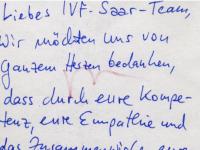 Liebes IVF-Saar-Team,
Wir möchten uns von
ganzem Herzen bedanken,
dass durch eure Kompe-
tenz, eure Empathie und
das Zusammenwirken eure